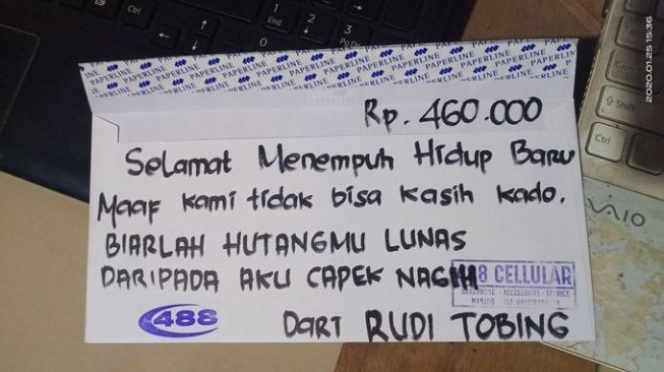 PAPERLINE PAPERLINE PAPERLINE PAPERLINE PAPERLINE
Rp. 460.000
Selamat Menempuh Hidup Baru
Maaf kami tidak bisa kasih kado.
BIARLAH HUTANGMU LUNAS
DARIPADA AKU CAPEK NAGIH
8 CELLULAR
HANDPHONE - ACCESSORIES - SERVICE
488
Dari RUDI TOBING
End
Shift
Ctrl
VAIO
2020.01.25 15:36